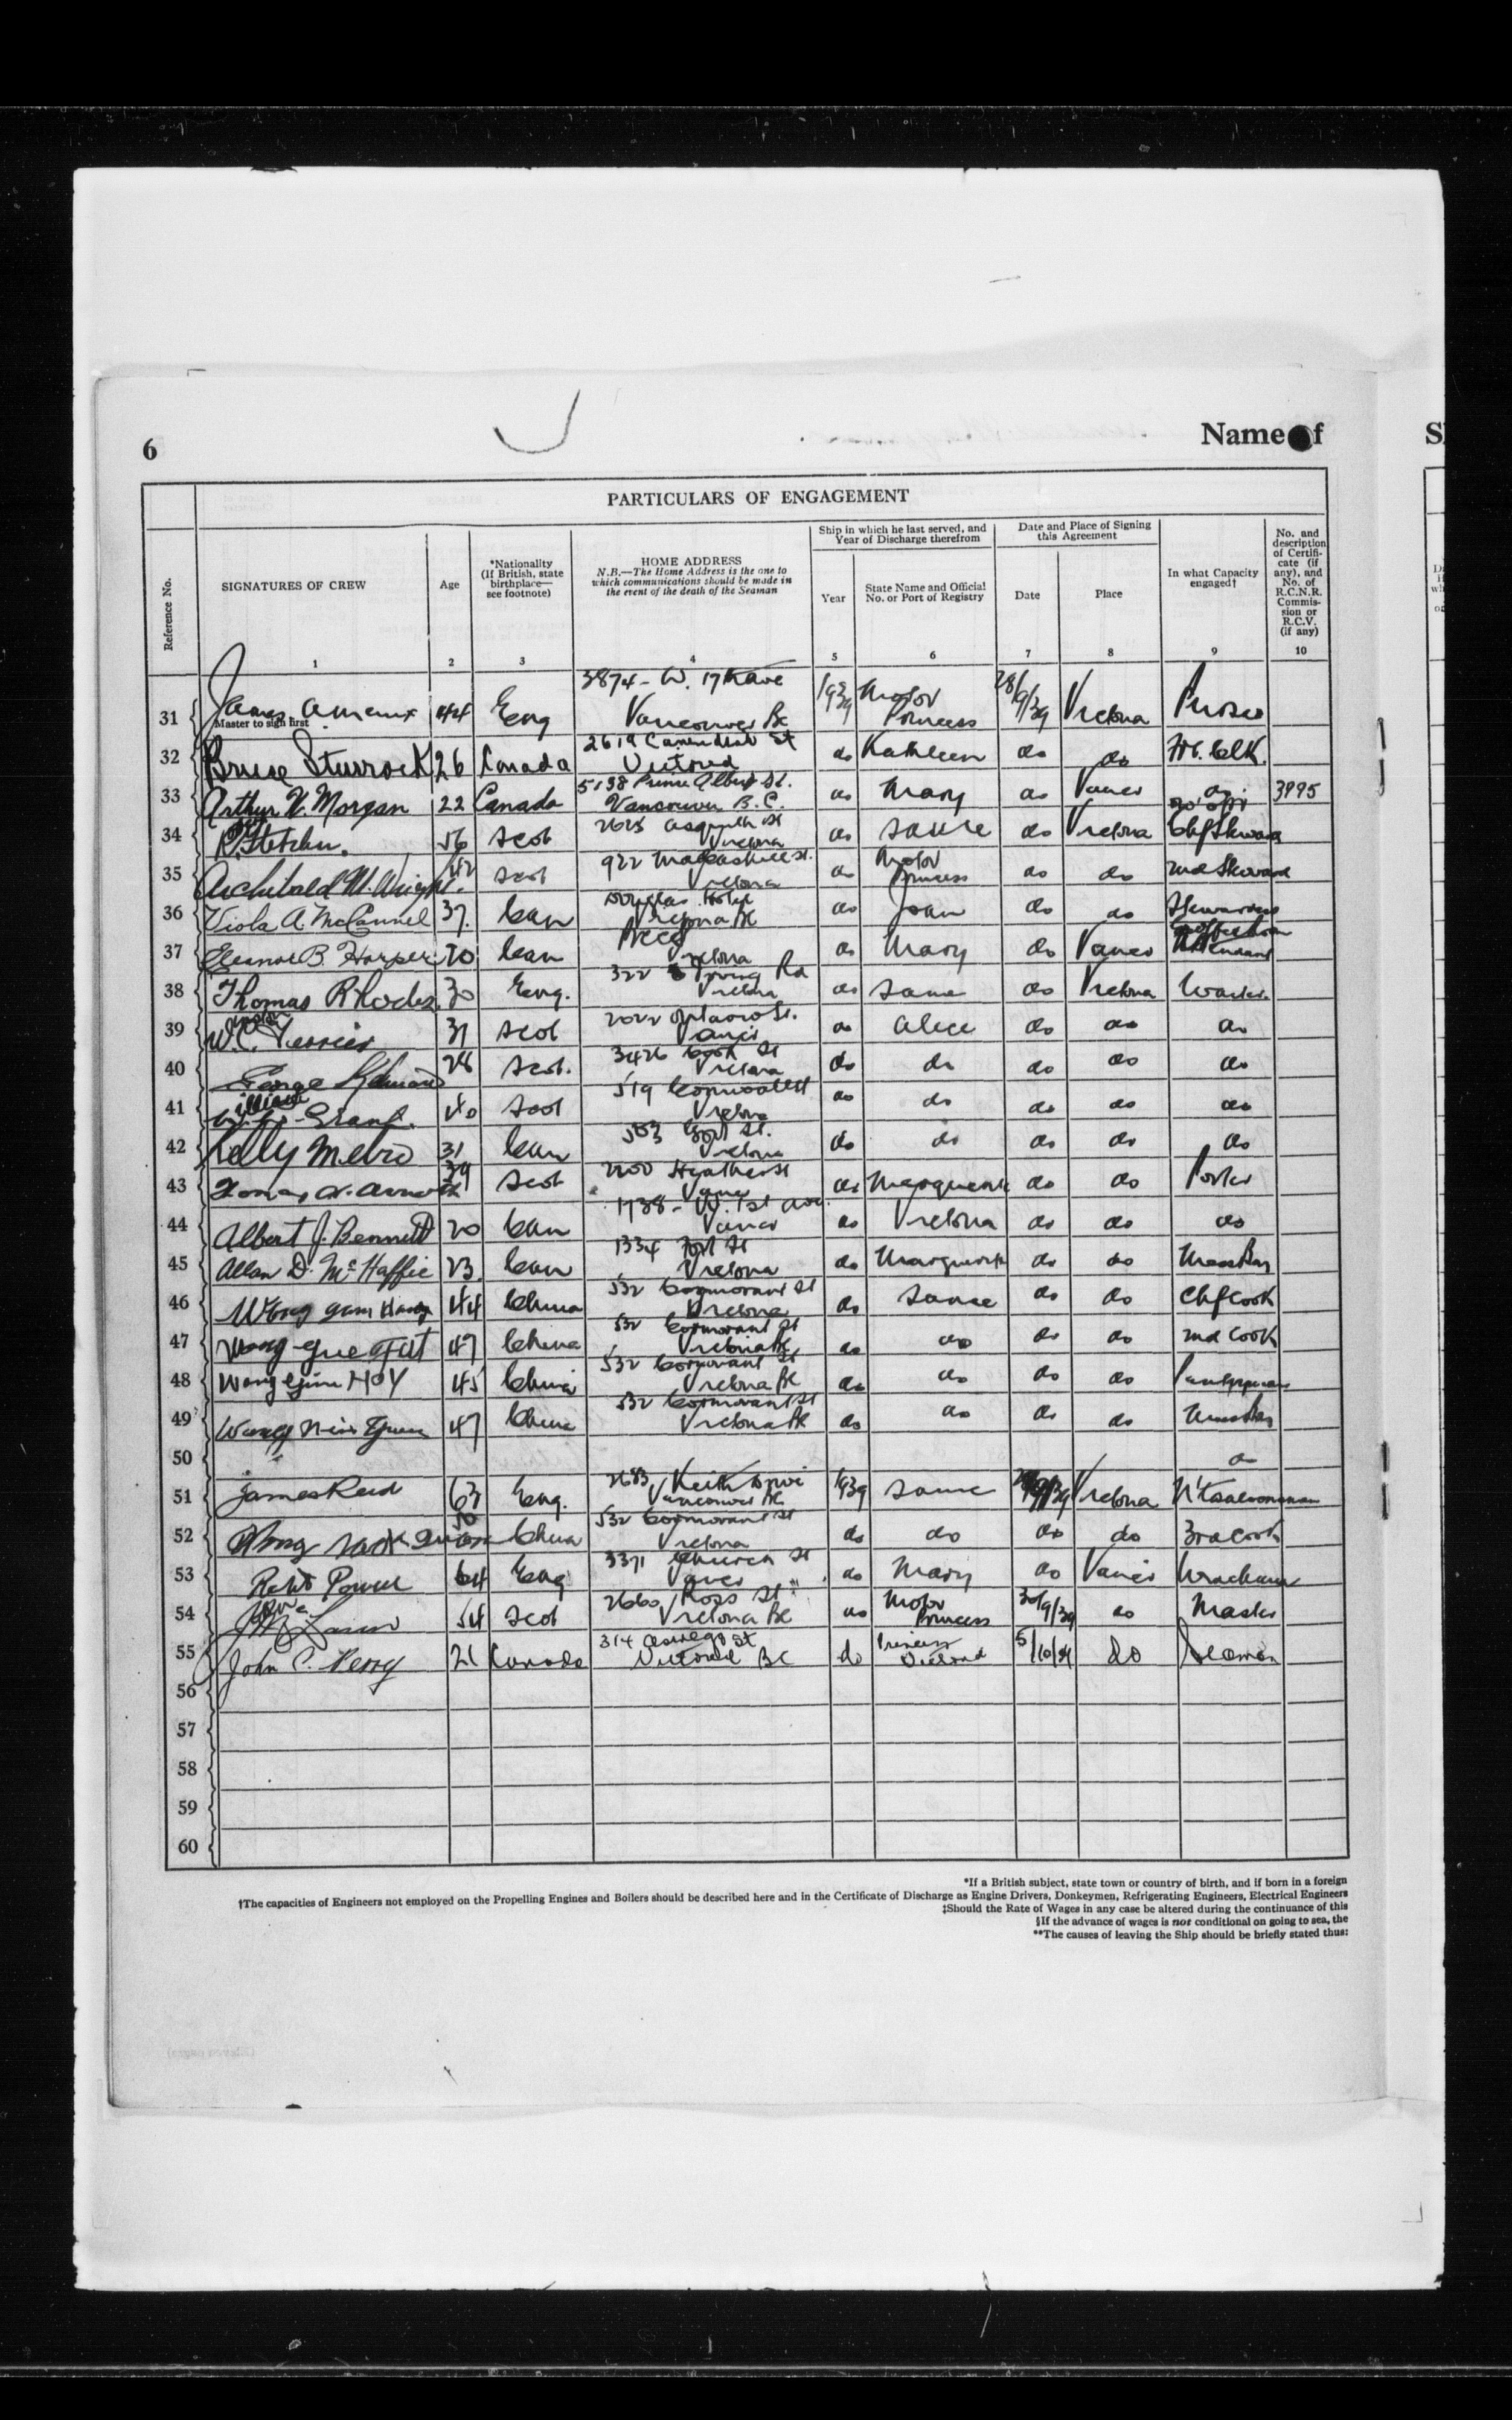 6
Name of
PARTICULARS OF ENGAGEMENT
Reference No.
SIGNATURES OF CREW
Age
*Nationality
(If British, state
birthplace—
see footnote)
HOME ADDRESS
N.B.—The Home Address is the one to
which communications should be made in
the event of the death of the Seaman
Ship in which he last served, and
Year of Discharge therefrom
Year
State Name and Official
No. or Port of Registry
Date and Place of Signing
this Agreement
Date
Place
In what Capacity
engaged†
No. and
description
of Certifi-
cate (if
any), and
No. of
R.C.N.R.
Commis-
sion or
R.C.V.
(if any)
1 2 3 4 5 6 7 8 9 10
3874 - W. 17th ave
31 James 44 Eng Vancouver Bc 1939 Motor Princess 28/9/39 Victoria Purser
Master to sign first
2619 St
32 Bruce Sturrock 26 Canada Victoria do Kathleen do do Frt. Clk.
5138 Prince Albert St.
33 Arthur V. Morgan 22 Canada Vancouver B.C. do Mary do Vancr 3995
2625 Asquith St
34 56 Scot Victoria do Same do Victoria Chf Steward
922 St.
35 Archibald M. Wright. 42 Scot Victoria do Motor Princess do do 2nd Steward
Douglas Hotel
36 Viola A. McConnel 37. Can Victoria Bc do Joan do do Stewardess
37 Eleanor B. Harper 20 Can Victoria do Mary do Vancr Attendant
322 Irving Rd
38 Thomas Rhodes. 30 Eng. Victoria do Same do Victoria Waiter.
2022 Ontario St.
39 W.C. 31 Scot Vancr do Alice do do do
3426 Cook St
40 George 28 Scot. Victoria do do do do do
519 Cornwall St
41 William Grant. 40 Scot Victoria do do do do do
583 St.
42 Kelly Metro 31 Can Victoria do do do do do
2200 Heather St
43 Thomas 39 Scot Vancr do Marguerite do do Porter
1738 - W. 1st ave
44 Albert J. Bennett 20 Can Vancr do Victoria do do do
1334 Fort St
45 Allan D. McHaffie 23. Can Victoria do Marguerite do do Messboy
532 Cormorant St
46 Wong 44 China Victoria do Same do do Chf Cook
532 Cormorant St
47 Wong 47 China Victoria Bc do do do do 2nd Cook
532 Cormorant St
48 Wong Hoy 45 China Victoria Bc do do do do Pantryman
532 Cormorant St
49 Wong 47 China Victoria Bc do do do do Messboy
50 do
2683 Keith Drive
51 James Reid 63 Eng. Vancouver Bc 1939 Same /9/39 Victoria
532 Cormorant St
52 50 China Victoria do do do do 3rd Cook
3371 Church St
53 Robt Power 64 Eng Vancr do Mary do Vancr
2660 Ross St
54 54 Scot Victoria Bc do Motor Princess 30/9/39 do Master
314 Oswego St
55 John C. Perry 21 Canada Victoria BC do Princess 5/10/39 do Seaman
56
57
58
59
60
*If a British subject, state town or country of birth, and if born in a foreign
†The capacities of Engineers not employed on the Propelling Engines and Boilers should be described here and in the Certificate of Discharge as Engine Drivers, Donkeymen, Refrigerating Engineers, Electrical Engineers
‡Should the Rate of Wages in any case be altered during the continuance of this
§If the advance of wages is not conditional on going to sea, the
**The causes of leaving the Ship should be briefly stated thus: